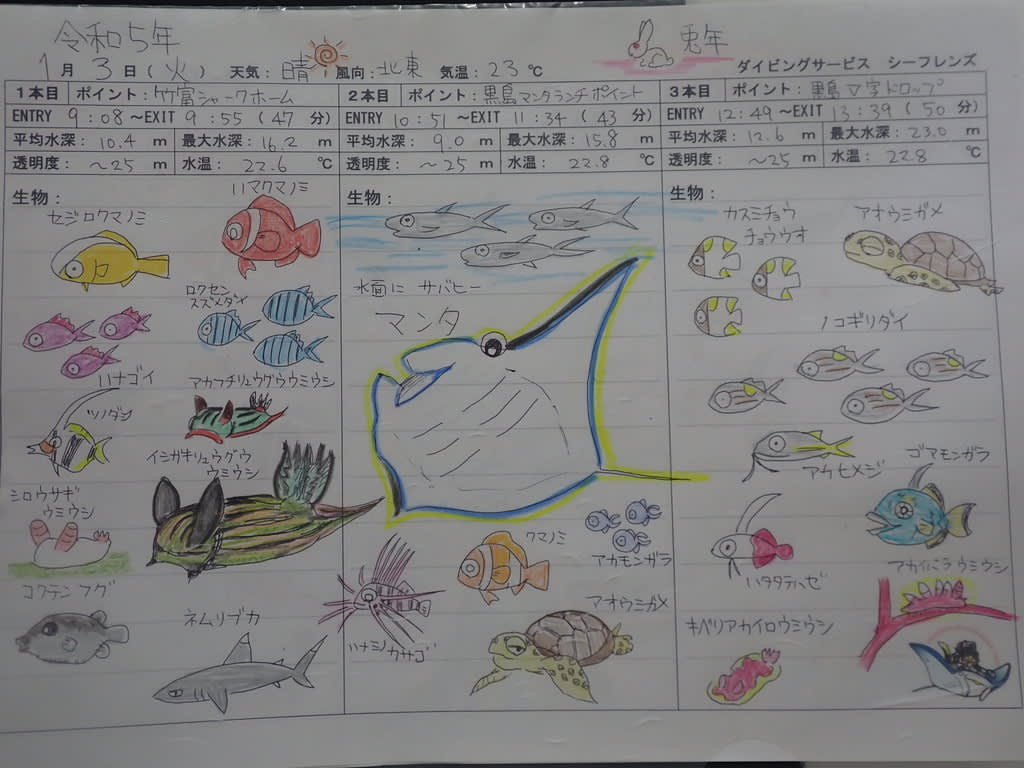 令和5年
兎年
1月3日(火) 天気:晴 風向:北東 気温:23℃
ダイビングサービス シーフレンズ
1本目 ポイント:竹富シャークホーム
ENTRY 9:08 ~EXIT 9:55 (47 分)
平均水深:10.4 m 最大水深:16.2 m
透明度: ~25 m 水温:22.6 ℃
生物:
セジロクマノミ
ハマクマノミ
ロクセン
スズメダイ
ハナゴイ
アカフチリュウグウウミウシ
ツノダシ
イシガキリュウグウ
ウミウシ
シロウサギ
ウミウシ
コクテンフグ
ネムリブカ
2本目 ポイント:黒島マンタランチポイント
ENTRY 10:51 ~EXIT 11:34 (43 分)
平均水深: 9.0 m 最大水深:15.8 m
透明度: ~25 m 水温: 22.8 ℃
生物:
水面に サバヒー
マンタ
クマノミ
アカモンガラ
アオウミガメ
ハナミノカサゴ
3本目 ポイント:黒島V字ドロップ
ENTRY 12:49 ~EXIT 13:39 (50 分)
平均水深: 12.6 m 最大水深: 23.0 m
透明度: ~25 m 水温: 22.8 ℃
生物:
カスミチョウ
チョウウオ
アオウミガメ
ノコギリダイ
アカヒメジ
ゴマモンガラ
ハタタテハゼ
ウミウシ
キベリアカイロウミウシ